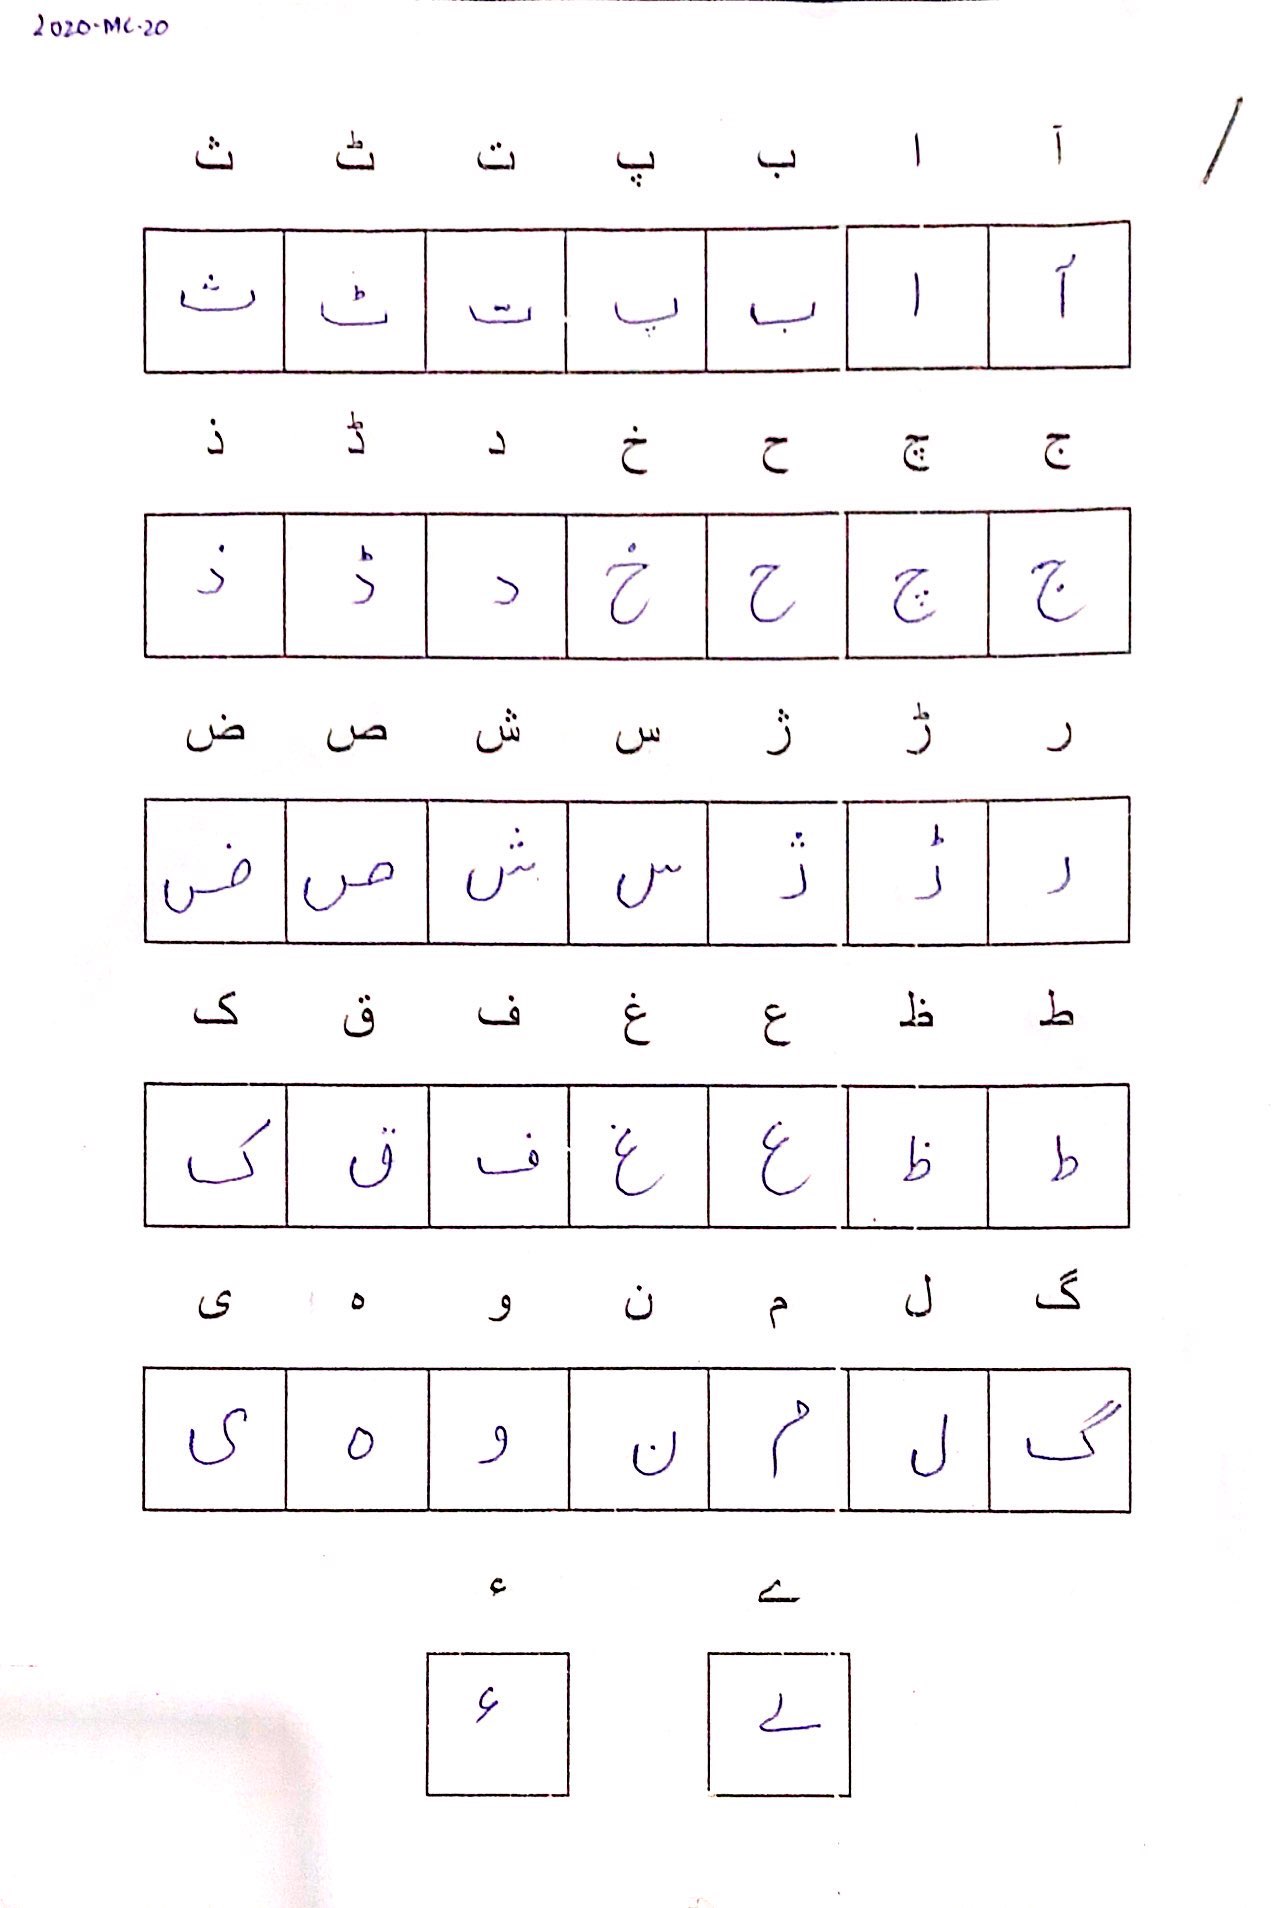 2020-MC-20
آ ا ب پ ت ٹ ث
آ ا ب پ ت ٹ ث
ج چ ح خ د ڈ ذ
ج چ ح خ د ڈ ذ
ر ڑ ژ س ش ص ض
ر ڑ ژ س ش ص ض
ط ظ ع غ ف ق ک
ط ظ ع غ ف ق ک
گ ل م ن و ہ ی
گ ل م ن و ہ ی
ے ء
ے ء